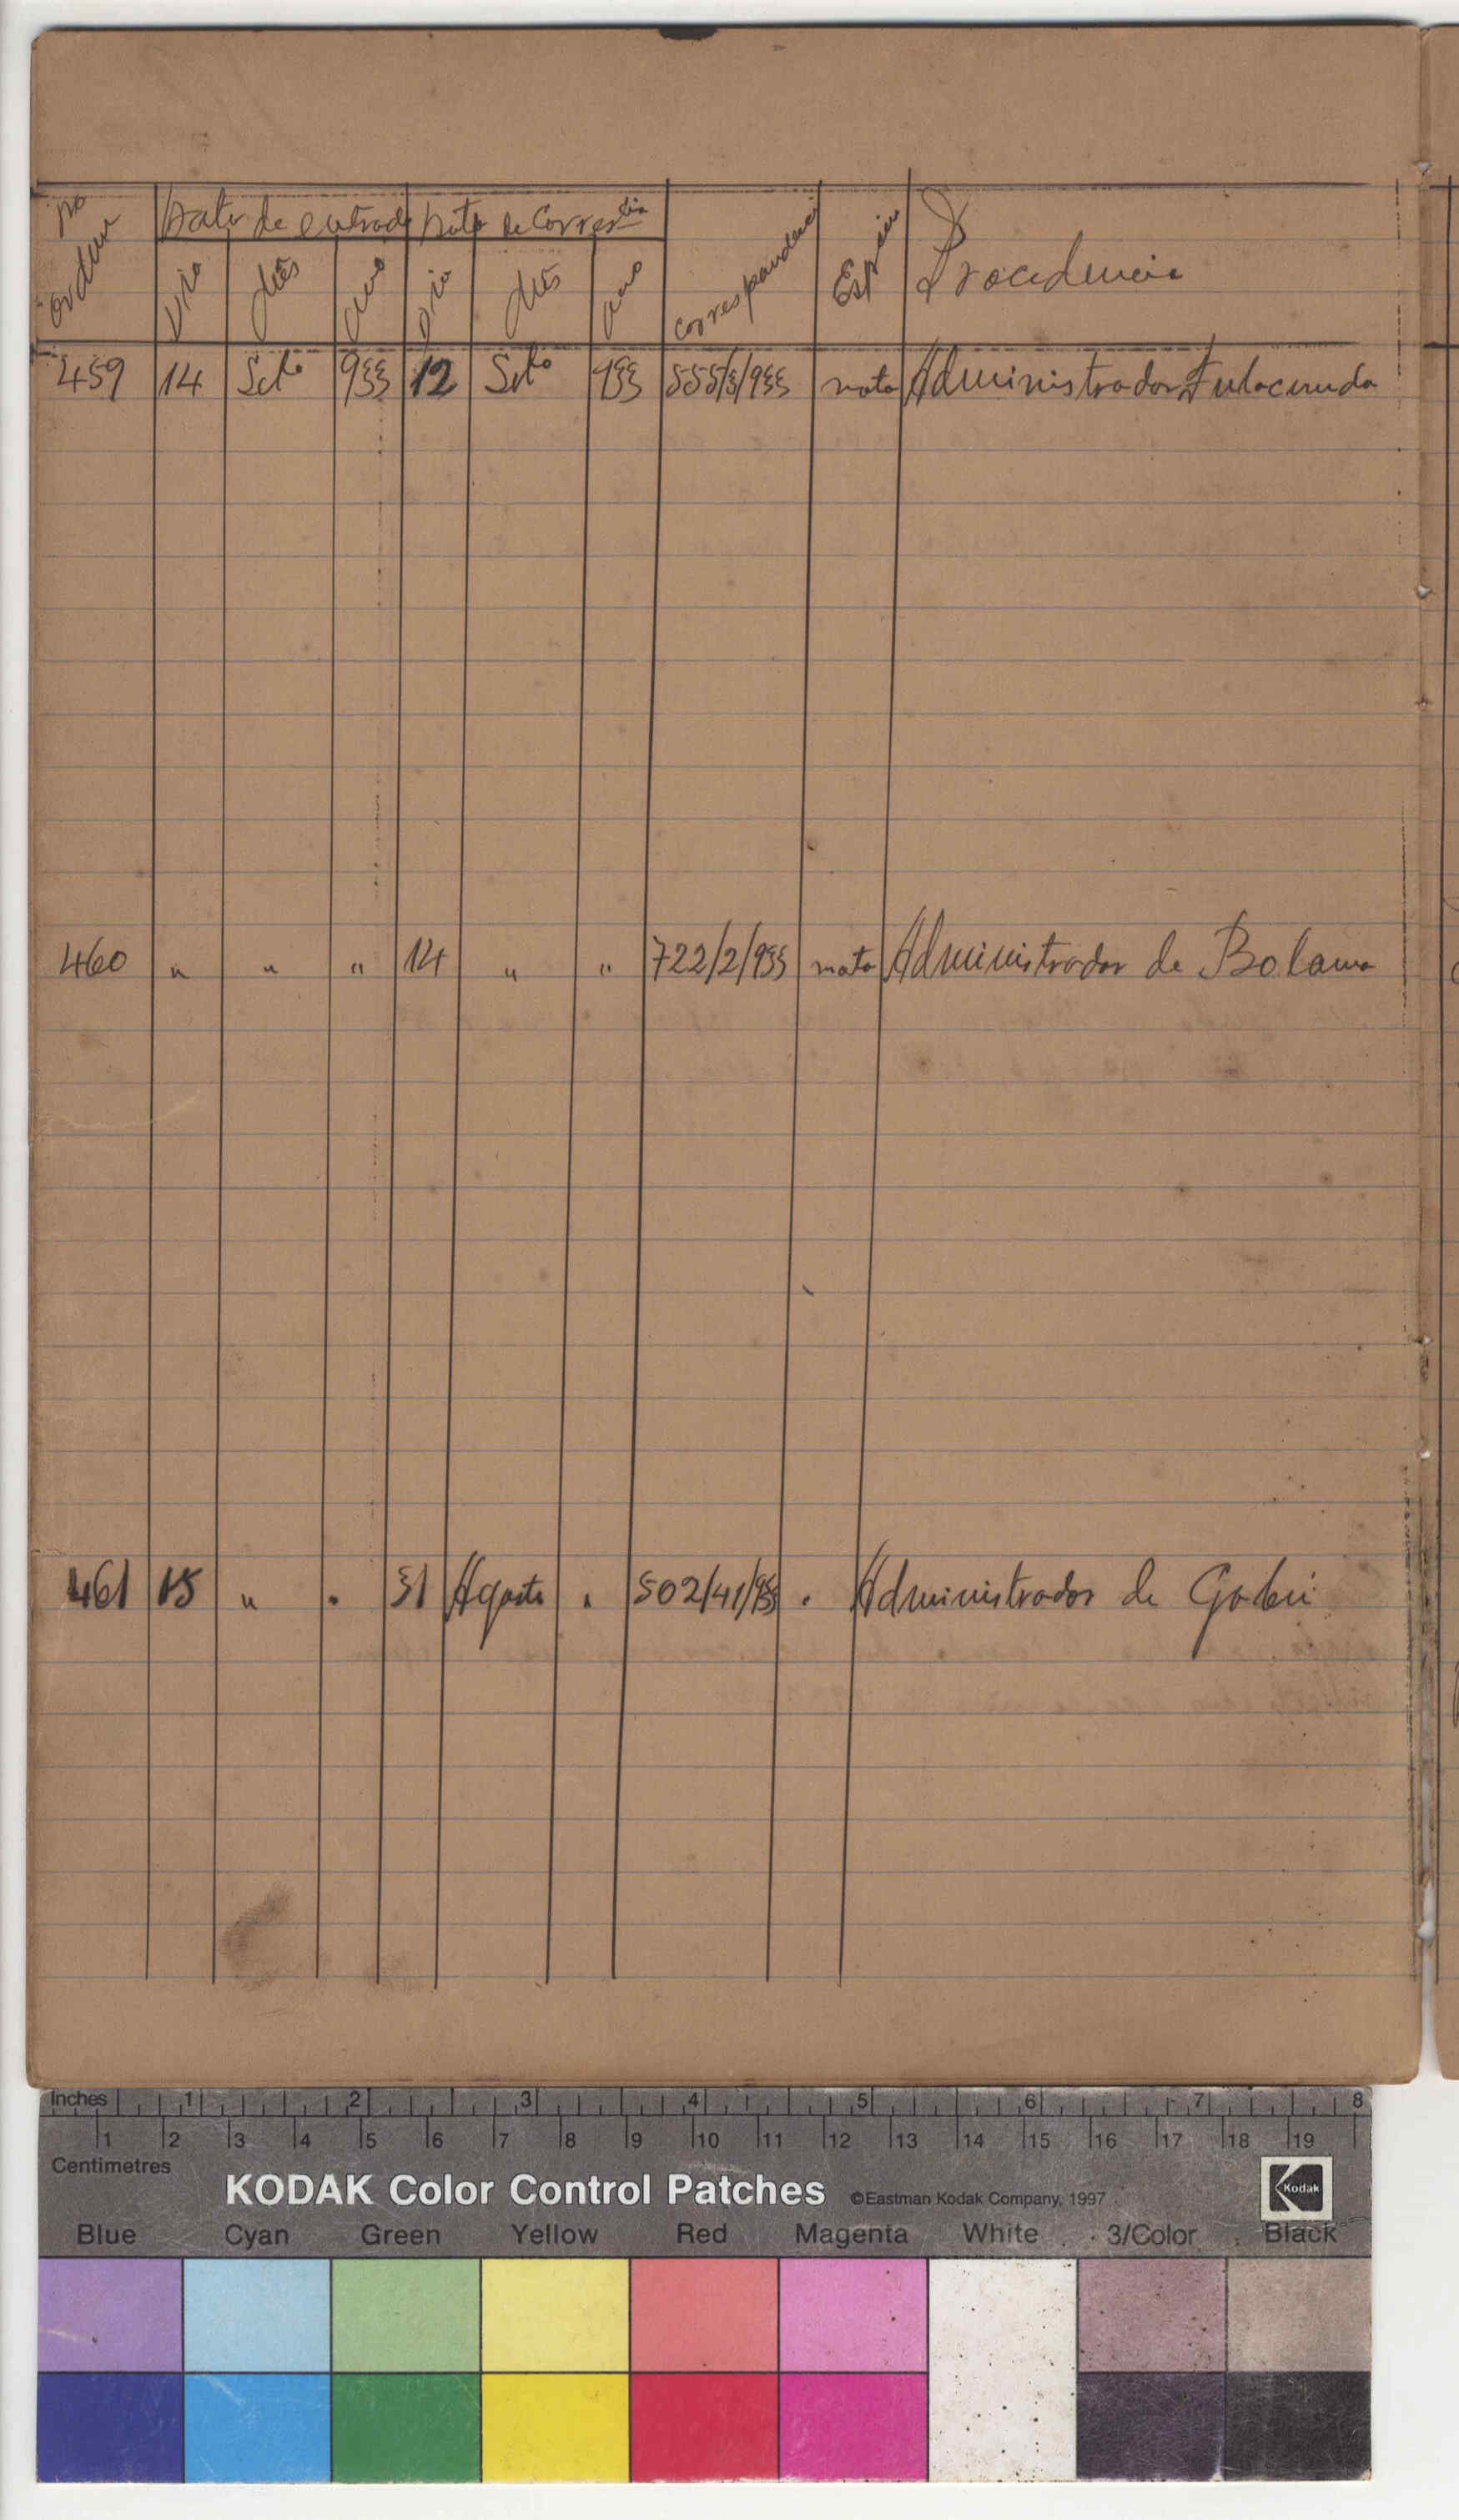 no ordem
Data de entrada Data de Corres.cia
Dia Mês Ano Dia Mês Ano correspondencia Espécie Procedencia
459 14 Seto 933 12 Seto 933 555/3/933 nota Administrador Fulacunda
460 " " " 14 " " 722/2/933 nota Administrador de Bolama
461 15 " " 31 Agosto " 502/41/933 " Administrador de Gabú
Inches 1 2 3 4 5 6 7 8
1 2 3 4 5 6 7 8 9 10 11 12 13 14 15 16 17 18 19
Centimetres
KODAK Color Control Patches ©Eastman Kodak Company, 1997 Kodak
Blue Cyan Green Yellow Red Magenta White 3/Color Black